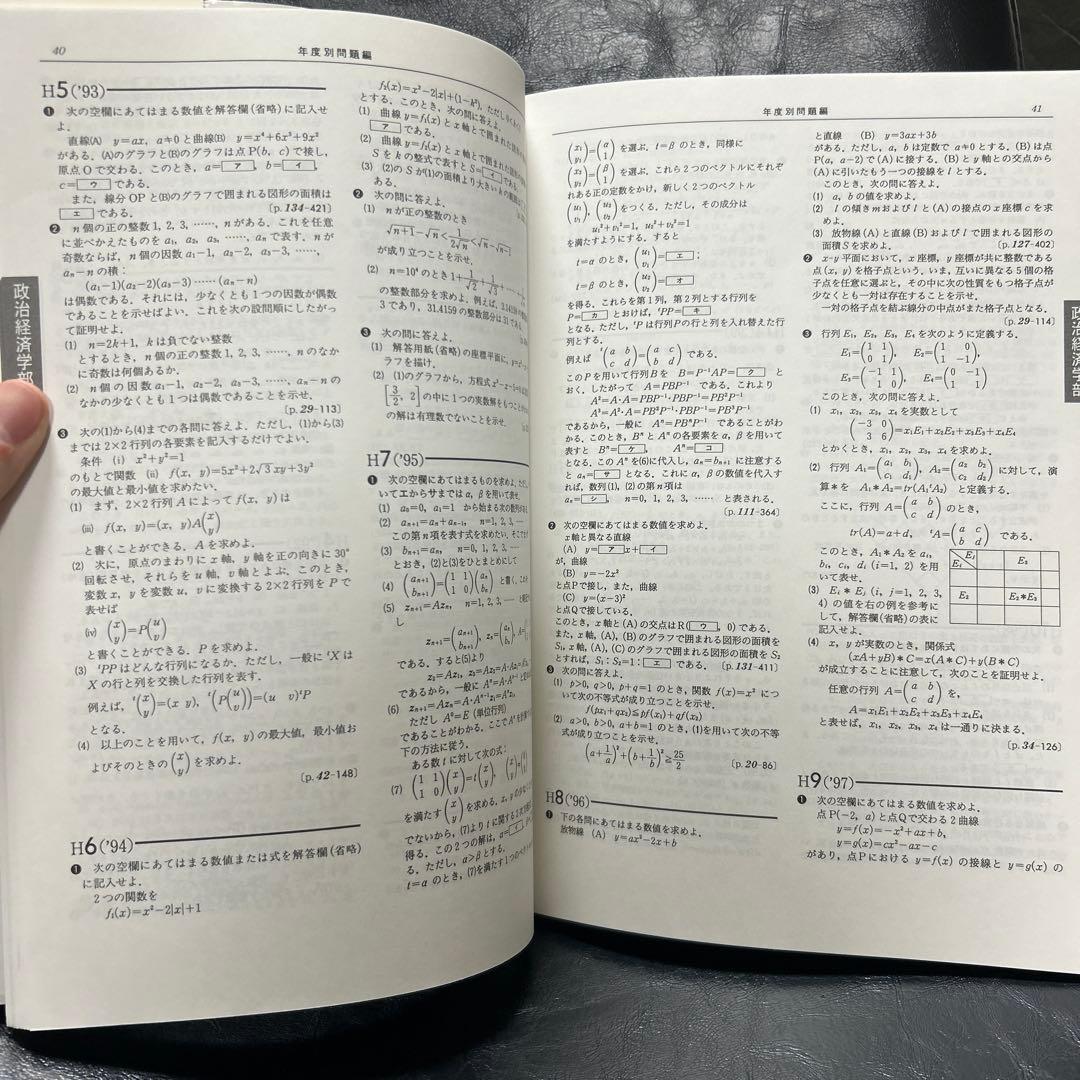 40
年度別問題編
H5('93)
❶ 次の空欄にあてはまる数値を解答欄(省略)に記入せ
よ.
直線(A) y=ax, a≠0 と曲線(B) y=x⁴+6x³+9x²
がある. (A)のグラフと(B)のグラフは点P(b, c)で接し,
原点Oで交わる. このとき, a=ア, b=イ,
c=ウである.
また, 線分OPと(B)のグラフで囲まれる図形の面積は
エである. 〔p.134-421〕
❷ n個の正の整数1, 2, 3, ……, nがある. これを任意
に並べかえたものを a₁, a₂, a₃, ……, aₙ で表す. nが
奇数ならば, n個の因数 a₁−1, a₂−2, a₃−3, ……,
aₙ−n の積:
(a₁−1)(a₂−2)(a₃−3)……(aₙ−n)
は偶数である. それには, 少なくとも1つの因数が偶数
であることを示せばよい. これを次の設問順にしたがっ
て証明せよ.
(1) n=2k+1, kは負でない整数
とするとき, n個の正の整数1, 2, 3, ……, nのなか
に奇数は何個あるか.
(2) n個の因数 a₁−1, a₂−2, a₃−3, ……, aₙ−n の
なかの少なくとも1つは偶数であることを示せ.
〔p.29-113〕
❸ 次の(1)から(4)までの各問に答えよ. ただし, (1)から(3)
までは2×2行列の各要素を記入するだけでよい.
条件 (i) x²+y²=1
のもとで関数 (ii) f(x, y)=5x²+2√3xy+3y²
の最大値と最小値を求めたい.
(1) まず, 2×2行列Aによって f(x, y) は
(iii) f(x, y)=(x y)A(x y)
と書くことができる. Aを求めよ.
(2) 次に, 原点のまわりにx軸, y軸を正の向きに30°
回転させ, それらをu軸, v軸とよぶ. このとき,
変数x, yを変数u, vに変換する2×2行列をPで
表せば
(iv) (x y)=P(u v)
と書くことができる. Pを求めよ.
(3) ᵗPPはどんな行列になるか. ただし, 一般に ᵗX は
Xの行と列を交換した行列を表す.
例えば, ᵗ(x y)=(x y), ᵗ(P(u v))=(u v)ᵗP
となる.
(4) 以上のことを用いて, f(x, y)の最大値, 最小値お
よびそのときの(x y)を求めよ.
〔p.42-148〕
H6('94)
❶ 次の空欄にあてはまる数値または式を解答欄(省略)
に記入せよ.
2つの関数を
f₁(x)=x²−2|x|+1
f₂(x)=x²−2|x|+(1−k²), ただし
とする. このとき, 次の問に答えよ.
(1) 曲線 y=f₁(x) とx軸とで囲まれた図形の
アである.
(2) 曲線 y=f₂(x) とx軸とで囲まれた図形の
Sをkの整式で表すと S=イ
(3) (2)のSが(1)の面積より大きいkの範囲は
ある.
❷ 次の問に答えよ.
(1) nが正の整数のとき
√n+1−√n<1/2√n<√n−√n−1
が成り立つことを示せ.
(2) n=10⁴ のとき 1+1/√2+1/√3+
の整数部分を求めよ. 例えば, 3.14159の整数部分は
3であり, 31.4159の整数部分は31である.
❸ 次の問に答えよ.
(1) 解答用紙(省略)の座標平面に,
フラフを描け.
(2) (1)のグラフから, 方程式
[3/2, 2]の中に1つの実数解をもつことが
の解は有理数でないことを示せ.
H7('95)
❶ 次の空欄にあてはまるものを求めよ. ただし
いてエからサまではα, βを用いて表せ.
(1) a₀=0, a₁=1 から始まる次の数列がある
(2) aₙ₊₁=aₙ+aₙ₋₁, n=1, 2, 3, …
この第n項を表す式を求めたい. そこで
(3) bₙ₊₁=aₙ, n=0, 1, 2, …
とおき, (2)と(3)をひとまとめにして
(4) (aₙ₊₁ bₙ₊₁)=(1 1 1 0)(aₙ bₙ) と書く.
(5) zₙ₊₁=Azₙ, n=1, 2, 3, …
し
zₙ₊₁=(aₙ₊₁ bₙ₊₁), zₙ=(aₙ bₙ), A=
である. すると(5)より
z₂=Az₁, z₃=Az₂=A·Az₁=A²z₁
であるから, 一般に
(6) zₙ₊₁=Azₙ=A·Aⁿ⁻¹z₁=Aⁿz₁
ただし A⁰=E (単位行列)
であることがわかる. ここで Aⁿ
下の方法に従う.
ある数tに対して次の式:
(7) (1 1 1 0)(x y)=t(x y),
を満たす(x y)を求める. x, yの少なくとも
でないから, (7)よりtに関する2次方程式
得る. この2つの解は, α=イ,
る. ただし, α>βとする.
t=α のとき, (7)を満たす1つのベクトル
政治経済学部
年度別問題編
41
(x₁ y₁)=(α 1) を選ぶ. t=β のとき, 同様に
(x₂ y₂)=(β 1) を選ぶ. これら2つのベクトルにそれぞ
れある正の定数をかけ, 新しく2つのベクトル
(u₁ v₁), (u₂ v₂)をつくる. ただし, その成分は
u₁²+v₁²=1, u₂²+v₂²=1
を満たすようにする. すると
t=α のとき, (u₁ v₁)=エ;
t=β のとき, (u₂ v₂)=オ
を得る. これらを第1列, 第2列とする行列を
P=カ とおけば, ᵗPP=キ
となる. ただし, ᵗPは行列Pの行と列を入れ替えた行
列とする.
例えば ᵗ(a b c d)=(a c b d) である.
このPを用いて行列Bを B=P⁻¹AP=ク と
おく. したがって A=PBP⁻¹ である. これより
A²=A·A=PBP⁻¹·PBP⁻¹=PB²P⁻¹
A³=A²·A=PB²P⁻¹·PBP⁻¹=PB³P⁻¹
であるから, 一般に Aⁿ=PBⁿP⁻¹ であることがわ
かる. このとき, BⁿとAⁿの各要素をα, βを用いて
表すと Bⁿ=ケ, Aⁿ=コ
となる. このAⁿを(6)に代入し, aₙ=bₙ₊₁ に注意する
と aₙ=サ となる. これにα, βの数値を代入す
れば, 数列(1), (2)の第n項は
aₙ=シ, n=0, 1, 2, 3, …… と表される.
〔p.111-364〕
❷ 次の空欄にあてはまる数値を求めよ.
x軸と異なる直線
(A) y=アx+イ
が, 曲線
(B) y=−2x²
と点Pで接し, また, 曲線
(C) y=(x−3)²
と点Qで接している.
このとき, x軸と(A)の交点はR(ウ, 0)である.
また, x軸, (A), (B)のグラフで囲まれる図形の面積を
S₁, x軸, (A), (C)のグラフで囲まれる図形の面積をS₂
とすれば, S₁:S₂=1:エ である. 〔p.131-411〕
❸ 次の問に答えよ.
(1) p>0, q>0, p+q=1 のとき, 関数 f(x)=x² につ
いて次の不等式が成り立つことを示せ.
f(px₁+qx₂)≦pf(x₁)+qf(x₂)
(2) a>0, b>0, a+b=1 のとき, (1)を用いて次の不等
式が成り立つことを示せ.
(a+1/a)²+(b+1/b)²≧25/2 〔p.20-86〕
H8('96)
❶ 下の各問にあてはまる数値を求めよ.
放物線 (A) y=ax²−2x+b
と直線 (B) y=3ax+3b
がある. ただし, a, bは定数で a≠0 とする. (B)は点
P(a, a−2)で(A)に接する. (B)とy軸との交点から
(A)に引いたもう一つの接線をlとする.
このとき, 次の問に答えよ.
(1) a, bの値を求めよ.
(2) lの傾きmおよびlと(A)の接点のx座標cを求
めよ.
(3) 放物線(A)と直線(B)およびlで囲まれる図形の
面積Sを求めよ. 〔p.127-402〕
❷ x-y平面において, x座標, y座標が共に整数である
点(x, y)を格子点という. いま, 互いに異なる5個の格
子点を任意に選ぶと, その中に次の性質をもつ格子点が
少なくとも一対は存在することを示せ.
一対の格子点を結ぶ線分の中点がまた格子点となる.
〔p.29-114〕
❸ 行列 E₁, E₂, E₃, E₄ を次のように定義する.
E₁=(1 1 0 1), E₂=(1 0 1 −1),
E₃=(−1 1 1 0), E₄=(0 −1 1 1)
このとき, 次の問に答えよ.
(1) x₁, x₂, x₃, x₄ を実数として
(−3 0 3 6)=x₁E₁+x₂E₂+x₃E₃+x₄E₄
とかくとき, x₁, x₂, x₃, x₄ を求めよ.
(2) 行列 A₁=(a₁ b₁ c₁ d₁), A₂=(a₂ b₂ c₂ d₂) に対して, 演
算＊を A₁＊A₂=tr(A₁ᵗA₂) と定義する.
ここに, 行列 A=(a b c d) のとき,
tr(A)=a+d, ᵗA=(a c b d) である.
このとき, A₁＊A₂ を aᵢ,
bᵢ, cᵢ, dᵢ (i=1, 2) を用
いて表せ.
(3) Eᵢ＊Eⱼ (i, j=1, 2, 3,
4) の値を右の例を参考に
して, 解答欄(省略)の表に
記入せよ.
Eᵢ Eⱼ E₃
E₂ E₂＊E₃
(4) x, yが実数のとき, 関係式
(xA+yB)＊C=x(A＊C)+y(B＊C)
が成立することに注意して, 次のことを証明せよ.
任意の行列 A=(a b c d) を,
A=x₁E₁+x₂E₂+x₃E₃+x₄E₄
と表せば, x₁, x₂, x₃, x₄ は一通りに決まる.
〔p.34-126〕
H9('97)
❶ 次の空欄にあてはまる数値を求めよ.
点P(−2, a)と点Qで交わる2曲線
y=f(x)=−x²+ax+b,
y=g(x)=cx²−ax−c
があり, 点Pにおける y=f(x) の接線と y=g(x) の
政治経済学部